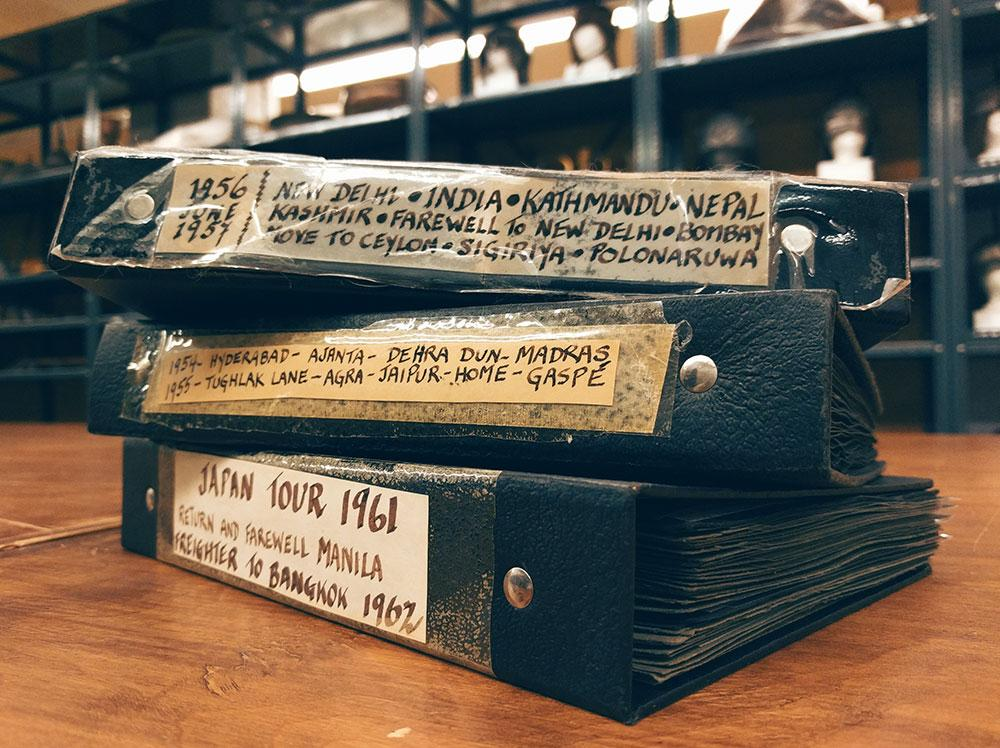 1956
JUNE
1957
NEW DELHI • INDIA • KATHMANDU • NEPAL
KASHMIR • FAREWELL TO NEW DELHI • BOMBAY
MOVE TO CEYLON • SIGIRIYA • POLONARUWA
1954- HYDERABAD - AJANTA - DEHRA DUN - MADRAS
1955 - TUGHLAK LANE - AGRA - JAIPUR - HOME - GASPÉ
JAPAN TOUR 1961
RETURN AND FAREWELL MANILA
FREIGHTER TO BANGKOK 1962